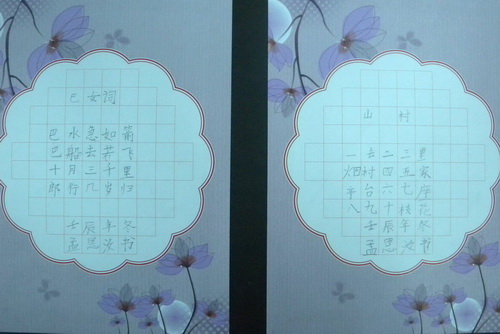 巴女词
巴水急如箭
巴船去若飞
十月三千里
郎行几岁归
壬辰年冬
孟思书
山村
一去二三里
烟村四五家
亭台六七座
八九十枝花
壬辰年冬
孟思书